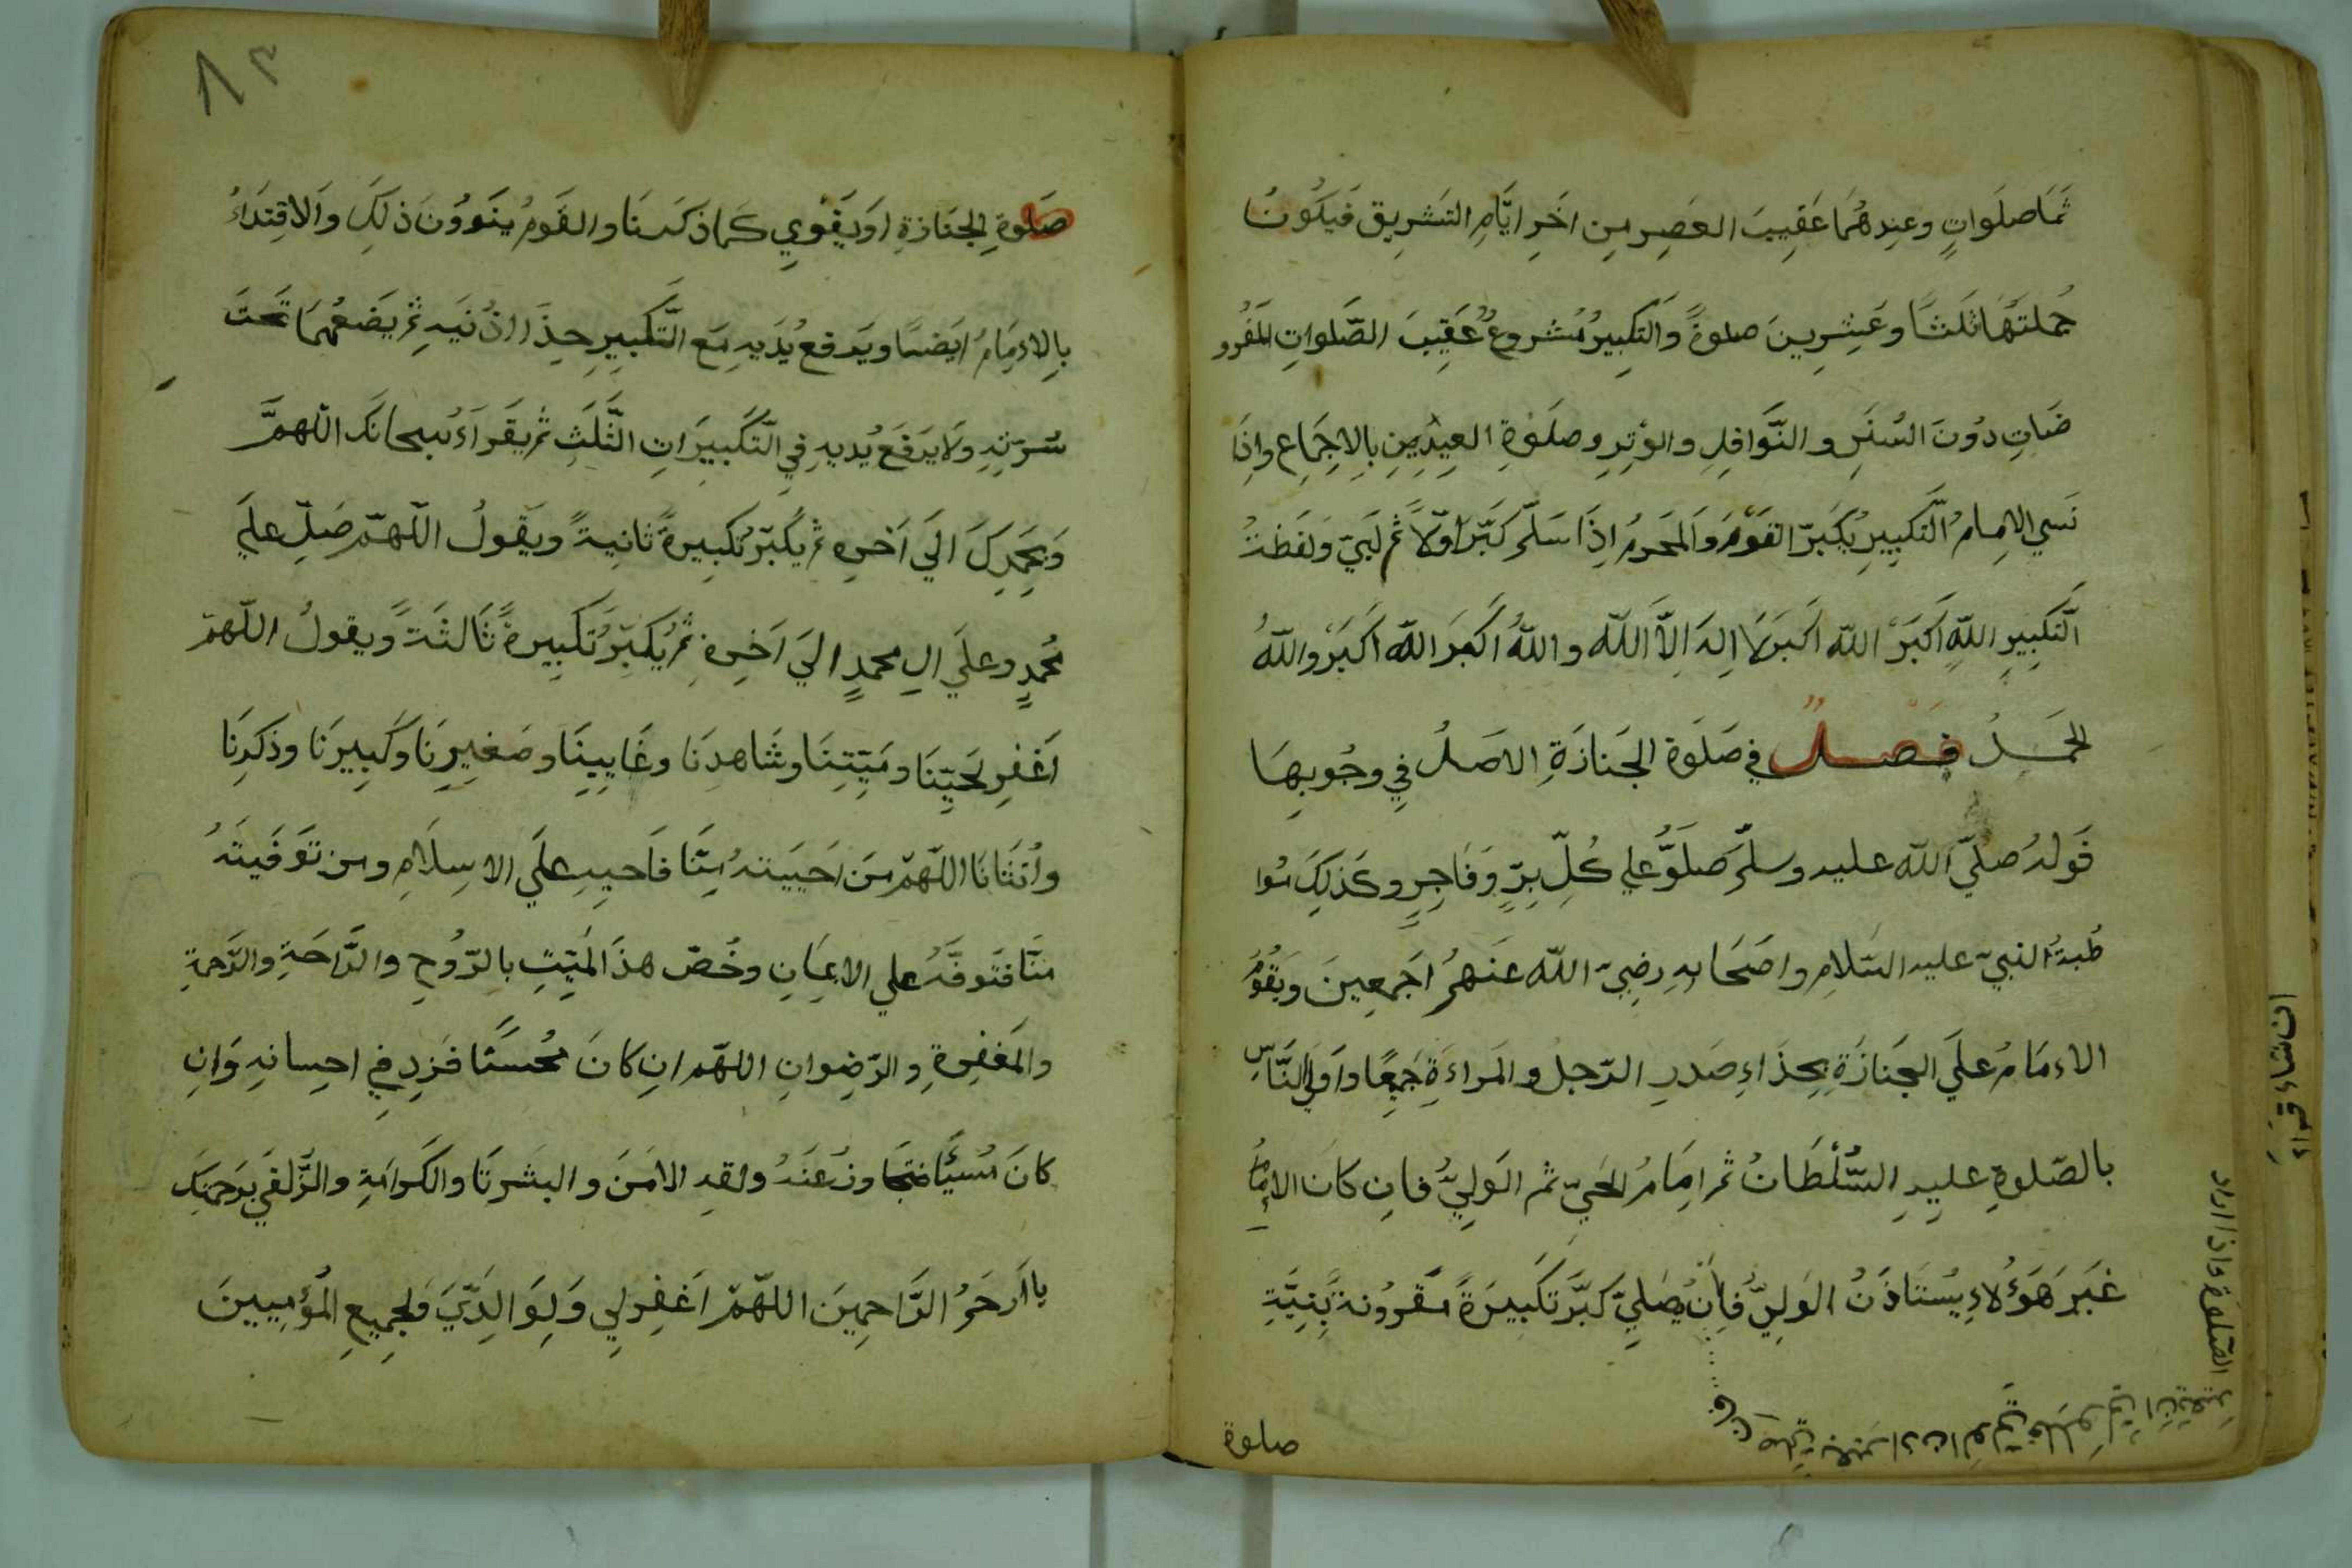 ثَمَا صلَواتٍ وعِندهُمَا عَقِيبَ العَصِرِ مِن اخَرِ ايَّامِ التَشرِيق فَيَكُونُ
جُملتَهَا ثَلَثَاً وعَشِرِينَ صلوةً وَالتَكبِيرُ مَشروعٌ عَقِيبَ الصَّلَواتِ المَفُرو
ضَاتِ دوُنَ السُنَنِ والنَّوَافِلِ والوِترِ وصلَوةِ العِيدَينِ بِالاِجمَاعِ واِذَا
نَسي الاِمامُ التَّكبِيرِ يُكَبّر القَومُ وَالمَحرمُ اِذَا سَلّمَ كَبَّرَ اوّلاً ثُم لَبَيّ ولَفظةُ
التَّكبِيرِ اللّهِ اَكبَرُ اللّه اَكبَر لاَ اِلهَ اِلاَّ اللّه واللّهُ اكَبَر اللّه اَكبَرُ وللّهِ
الحَمدُ فَصلٌ في صَلوَة الجَنازَةِ الاصَلُ فِي وجُوبِهَا
قَولهُ صليّ اللّه عليه وسلّم صَلوُّ علي كُلِّ بِرٍّ وَفَاجِرٍ وكَذلِكَ مُوا
ظَبةُ النبيّ عليه السَلامِ واصَحَابهِ رضِيّ اللّه عَنهمُ اَجمعِينَ ويَقُومُ
الاءِمَامُ علَي الجَنازَةِ بِحِذَاءِ صَدرِ الرّجلِ والمَراءةِ جَمِيعًا واَولَي النَّاسِ
بالصّلوةِ عليهِ السُّلْطَانُ ثم اِمَامُ الحَيّ ثم الوَلِيُّ فاِن كانَ الاِمَامُ
غَيَر هَؤُلاءِ يُستَاذَنُ الوَلِيُّ فاِنْ يُصَلِيّ كبَّر تَكبِيَرَةً مَقرُونةً بِنِيَّةِ
صلوة
صَلوةِ الجَنازةِ اوَيَقَوِي كَما ذَكَرنَا والقَومُ ينَووُنَ ذلِكَ وَالاقِتدَاءُ
بِالاءِمَامُ ايَضًا ويَرفعُ يُدَيهِ مَع التَّكبِيرِ حِذَاءَ اذُنَيهِ ثم يَضَعُهمَا تَحتَ
سُرّتهِ ولَا يَرفَعُ يُديهِ فِي التَّكبِيرَاتِ الثَّلَثِ ثُم يقَراءُ سبحانَك اللّهمَّ
وَبِحَمدِكَ الَي آخِرهِ ثم يُكَبّر تَكبِيرةً ثانِيةً ويقَولُ اللّهمّ صَلّ علَي
مُحمدٍ وعلَي الِ محمدٍ الَي اَخِرهِ ثمُ يُكَبِّرُ تَكبِيرةً ثَالثَةً ويقولُ اللّهمّ
اَغفِر لحَيِّنَا ومَيّتِنَا وشَاهِدنَا وغَايِبِنَا وصَغيِرِنَا وكَبِيرنَا وذَكرِنَا
واُنثَانَا اللّهمّ مَن اَحيَيتهُ مِنّا فاَحيِهِ علَي الاسِلَامِ ومن تَوَفَيتَهُ
مِنّا فتَوفَّهُ علي الايمَانِ وخُصّ هذَا المَيِّتِ بالرّوُحِ والرَّاحَةِ والرَّحمةِ
والمَغفِرةِ والرّضِوانِ اللهّم اِن كانَ مُحسنًا فزِد فِي احِسانِهِ وَاِن
كانَ مُسيًّا فتَجَاوز عَنهُ ولقهِ الامَنَ والبشَرَنَا والكَرامَةِ والزَّلفَي بِرَحمتِكَ
يا اَرحَمُ الرَّاحِمِينَ اللهّمّ اَغفِرلِي وَلِوَالِدَيَّ وَلِجَمِيعِ المُؤمِنِينَ